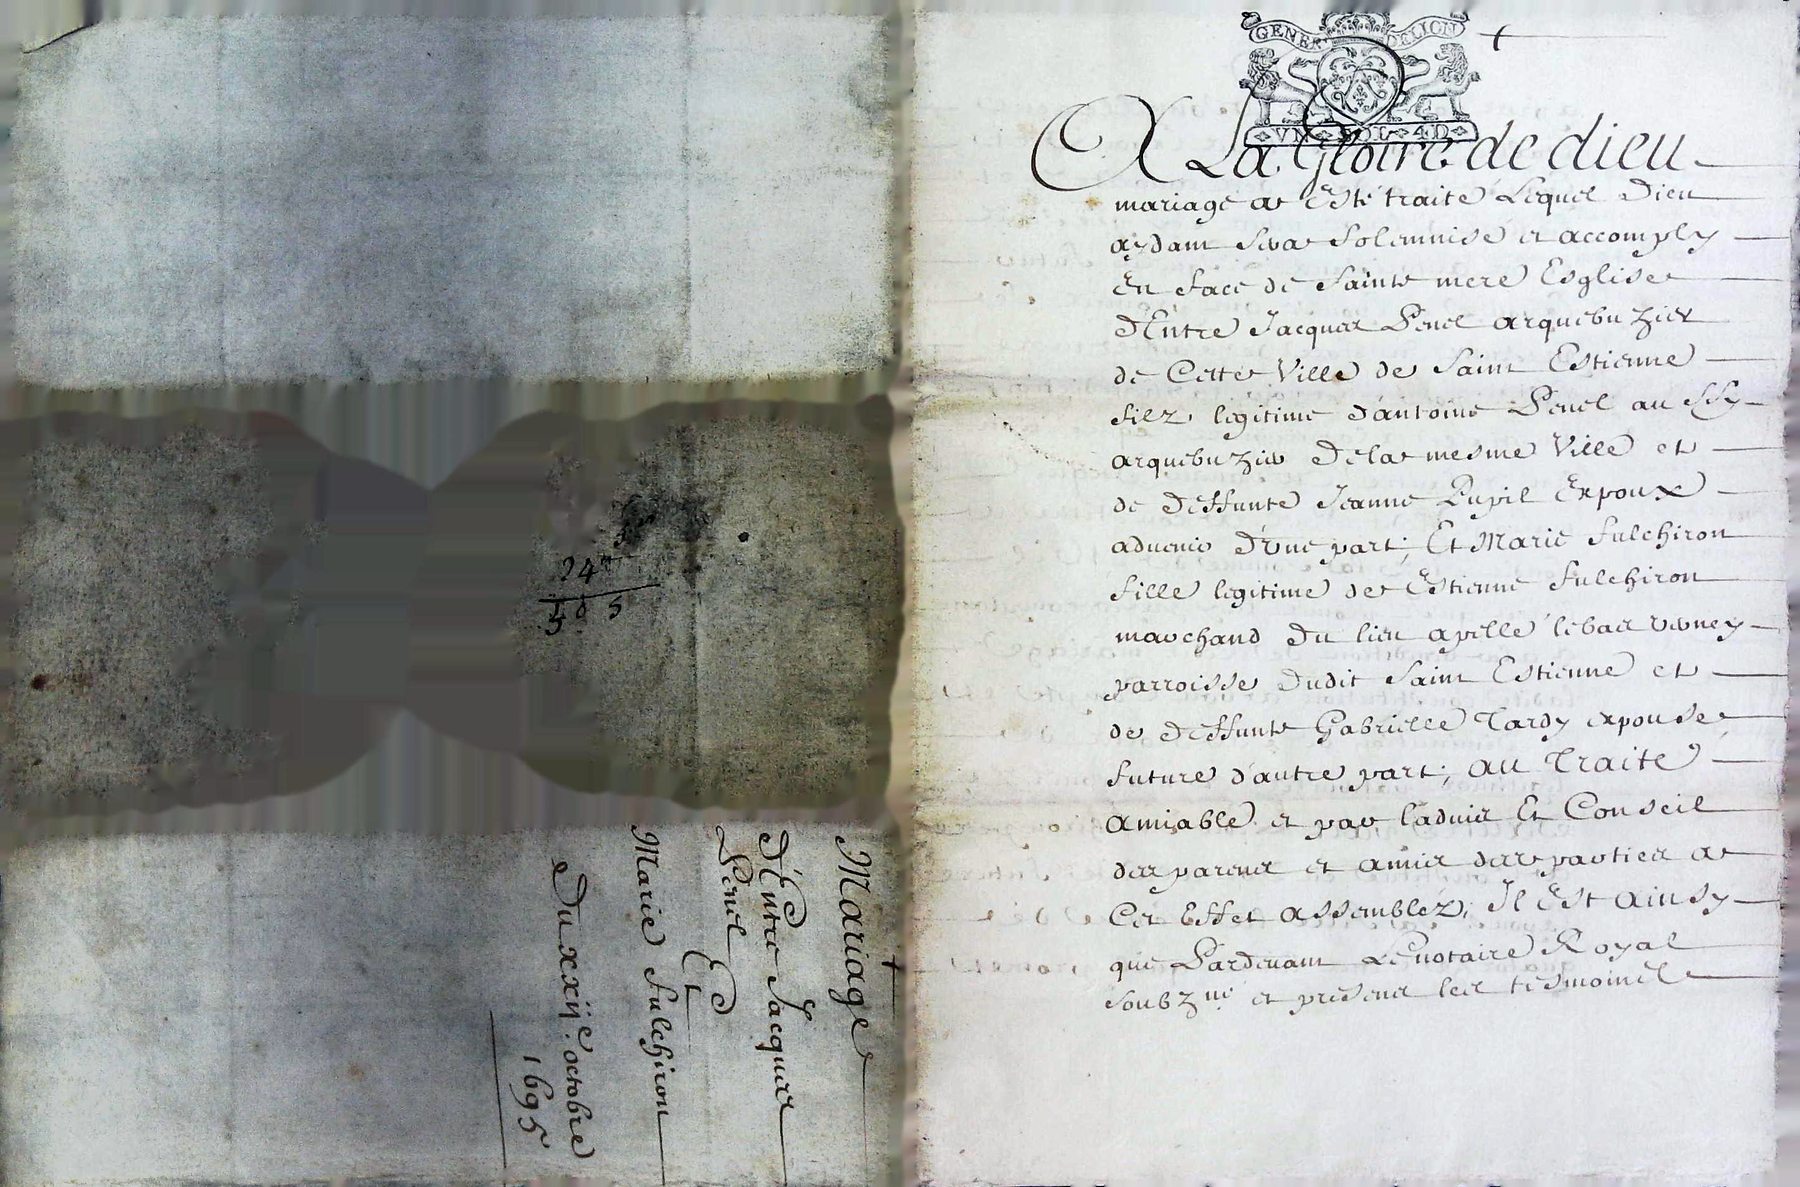 GENER DELION
VN SOL 4D
A La Gloire de dieu
mariage a Esté traité Lequel Dieu
aydant sera solemnisé et accomply
En face de sainte mere Esglise
d'Entre Jacques Penel arquebuzier
de Cette Ville de Saint Estienne
filz legitime d'antoine Penel aussy
arquebuzier dela mesme Ville et
de deffunte Jeanne Pupil Expoux
aduenir d'vne part; Et Marie fulchiron
fille legitime de Estienne fulchiron
marchand du lieu apellé lebas verney
parroisse dudit saint Estienne et
de deffunte Gabrielle Tardy expouse
future d'autre part; au Traité
amiable et par laduis Et Conseil
des parens et amis des parties a
Cet Effet assemblez; Il Est ainsy
que Pardeuant Le notaire Royal
soubzné et presens les tesmoins
Mariage
d'Entre Jacques
Penel Et
Marie fulchiron
Du xxiie. octobre
1695